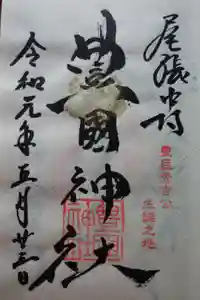 尾張中村
豊臣秀吉公
生誕之地
豊國神社
令和元年五月廿三日